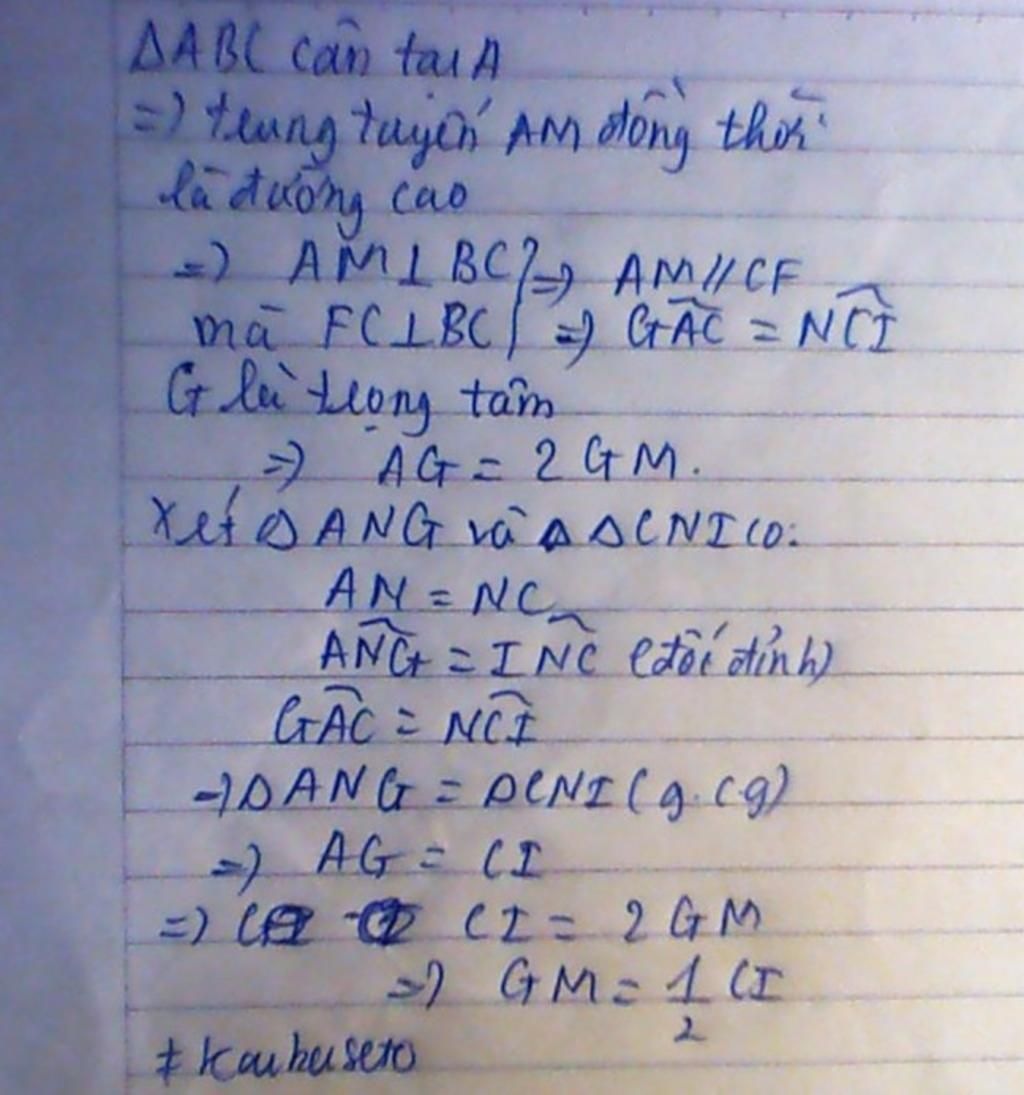 ΔABC cân tại A
=> trung tuyến AM đồng thời
là đường cao
=> AM⊥BC } => AM//CF
mà FC⊥BC } => GÂC = NĈI
G là trọng tâm
=> AG = 2GM.
Xét ΔANG và ΔCNI có:
AN = NC
AN̂G = IN̂C (đối đỉnh)
GÂC = NĈI
=> ΔANG = ΔCNI (g.c.g)
=> AG = CI
=> CI = 2GM
=> GM = 1/2 CI